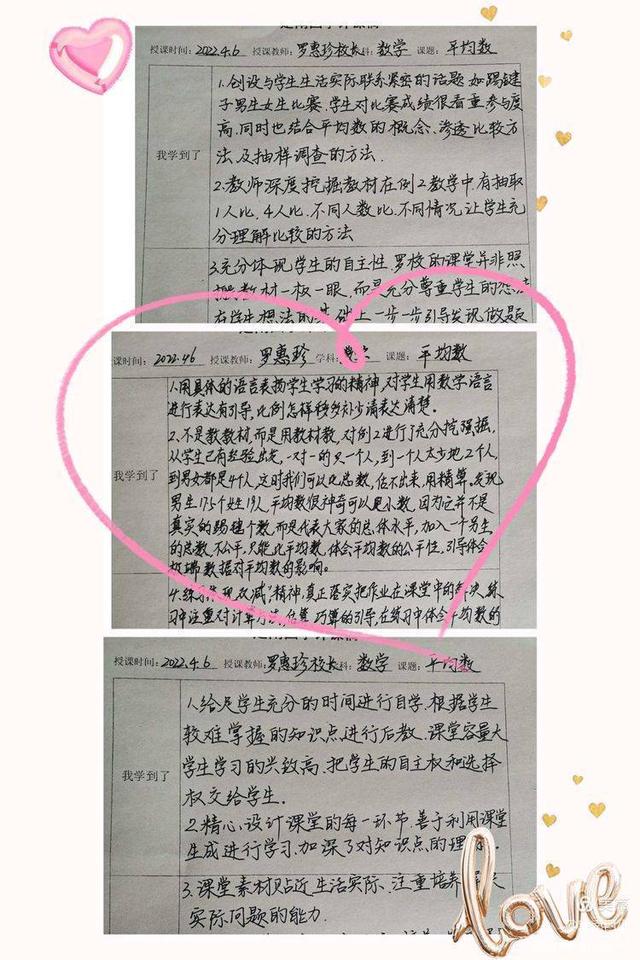 授课时间：2022.4.6 授课教师：罗惠珍校长 科：数学 课题：平均数
我学到了
1.创设与学生生活实际联系紧密的话题 如踢毽
子男生女生比赛,学生对比赛成绩很看重参与度
高,同时也结合平均数的概念、渗透比较方
法,及抽样调查的方法.
2.教师深度挖掘教材在例2教学中,有抽取
1人比,4人比,不同人数比,不同情况,让学生充
分理解比较的方法
3.充分体现学生的自主性,罗校的课堂并非照
教材一板一眼,而是充分尊重学生的想法
在学生想法的基础上一步一步引导发现做题
课时间：2022.4.6 授课教师：罗惠珍 学科：数学 课题：平均数
我学到了
1.用具体的语言表扬学生学习的精神,对学生用数学语言
进行表达有引导,比例怎样移多补少请表达清楚。
2.不是教教材,而是用教材教,对例2进行了充分挖掘,
从学生已有经验出发,一对一的只一个人,到一个人太少地2个人,
到男女都是4个人,这时我们可以比总数,估不出来,用精算。发现
男生17.5个 19人,平均数很神奇可以是小数,因为它并不是
真实的踢毽个数,而是代表大家的总体水平,加入一个男生
的总数不公平,只能比平均数,体会平均数的公平性,引导体会
极端数据对平均数的影响。
4.练习体现双减精神,真正落实把作业在课堂中的解决,练
习中注重对计算方法,估算,巧算的引导,在练习中体会平均数的
授课时间：2022.4.6 授课教师：罗惠珍校长 科：数学 课题：平均数
我学到了
1.给足学生充分的时间进行自学.根据学生
较难掌握的知识点进行后教.课堂容量大
学生学习的兴致高.把学生的自主权和选择
权交给学生.
2.精心设计课堂的每一环节.善于利用课堂
生成进行学习.加深了对知识点的理
3.课堂素材贴近生活实际、注重培养
实际问题的能力.
love